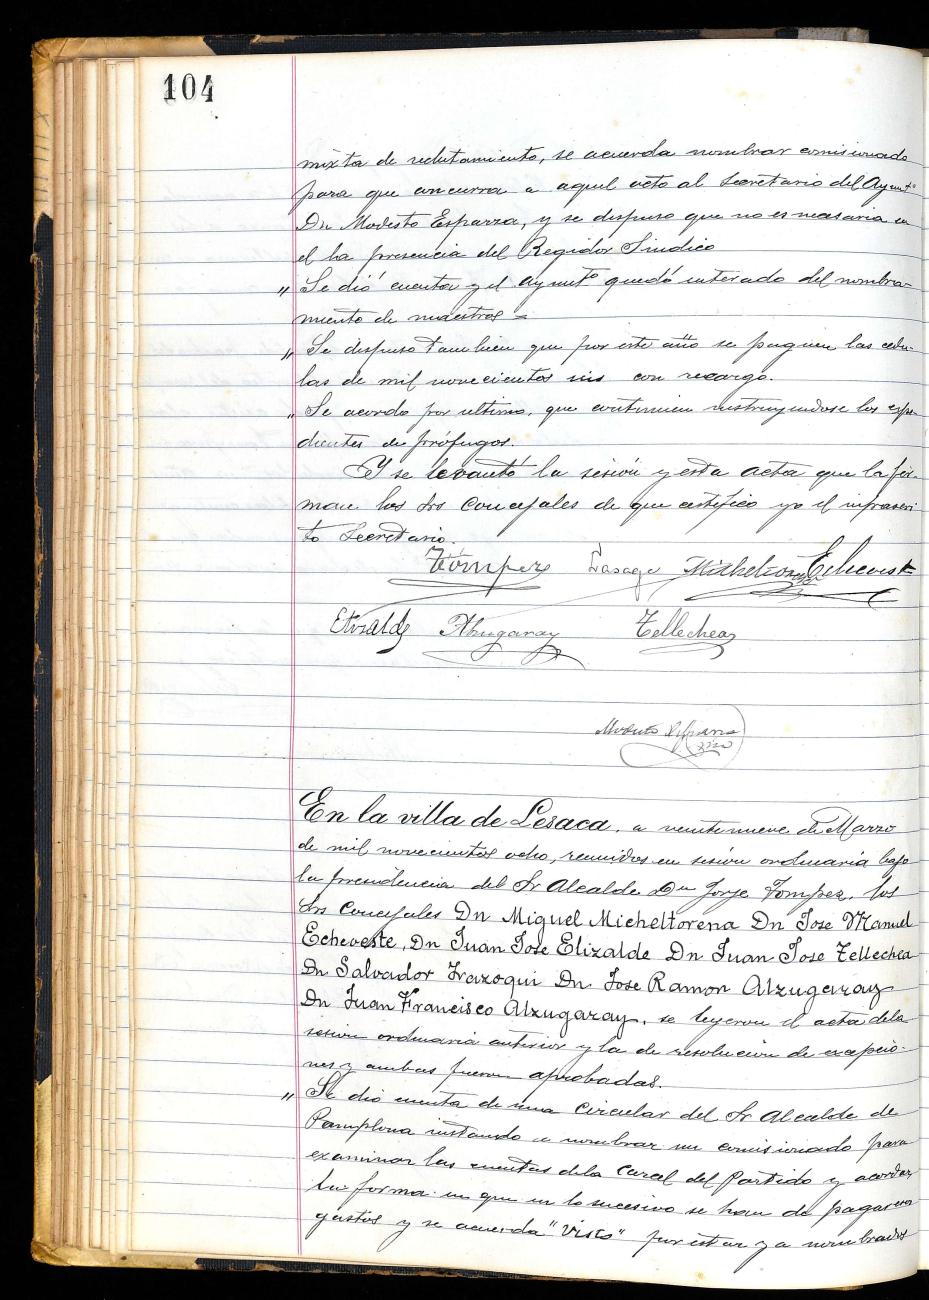 104
mixta de reclutamiento, se acuerda nombrar comisionado
para que concurra a aquel acto al Secretario del Aymtº
Dn Modesto Esparza, y se dispuso que no es necesaria en
el la presencia del Regidor Sindico
" Se dió cuenta y el aymtº quedó enterado del nombra-
miento de maestros =
" Se dispuso tambien que por este año se paguen las cedu-
las de mil novecientos seis con recargo.
" Se acordo por ultimo, que continuen instruyendose los espe-
dientes de prófugos.
Y se levantó la sesión y esta acta que la fir-
man los Srs Concejales de que certifico yo el infrascri-
to Secretario.
Tómpez Lasaga Micheltorena Echeveste
Elizalde Alzugaray Tellechea
Modesto Esparza
srio
En la villa de Lesaca, a veintinueve de Marzo
de mil novecientos ocho, reunidos en sesión ordinaria bajo
la presidencia del Sr Alcalde Dn Jorje Tompez, los
Srs Concejales Dn Miguel Micheltorena Dn Jose Manuel
Echeveste, Dn Juan Jose Elizalde Dn Juan Jose Tellechea
Dn Salvador Irazoqui Dn Jose Ramon Alzugaray
Dn Juan Francisco Alzugaray, se leyeron el acta dela
sesion ordinaria anterior y la de resolución de excepcio-
nes y ambas fueron aprobadas.
" Se dio cuenta de una circular del Sr Alcalde de
Pamplona instando a nombrar un comisionado para
examinar las cuentas dela carcel del Partido y acordar
la forma en que en lo sucesivo se han de pagar sus
gastos y se acuerda "Visto" por estar ya nombrados